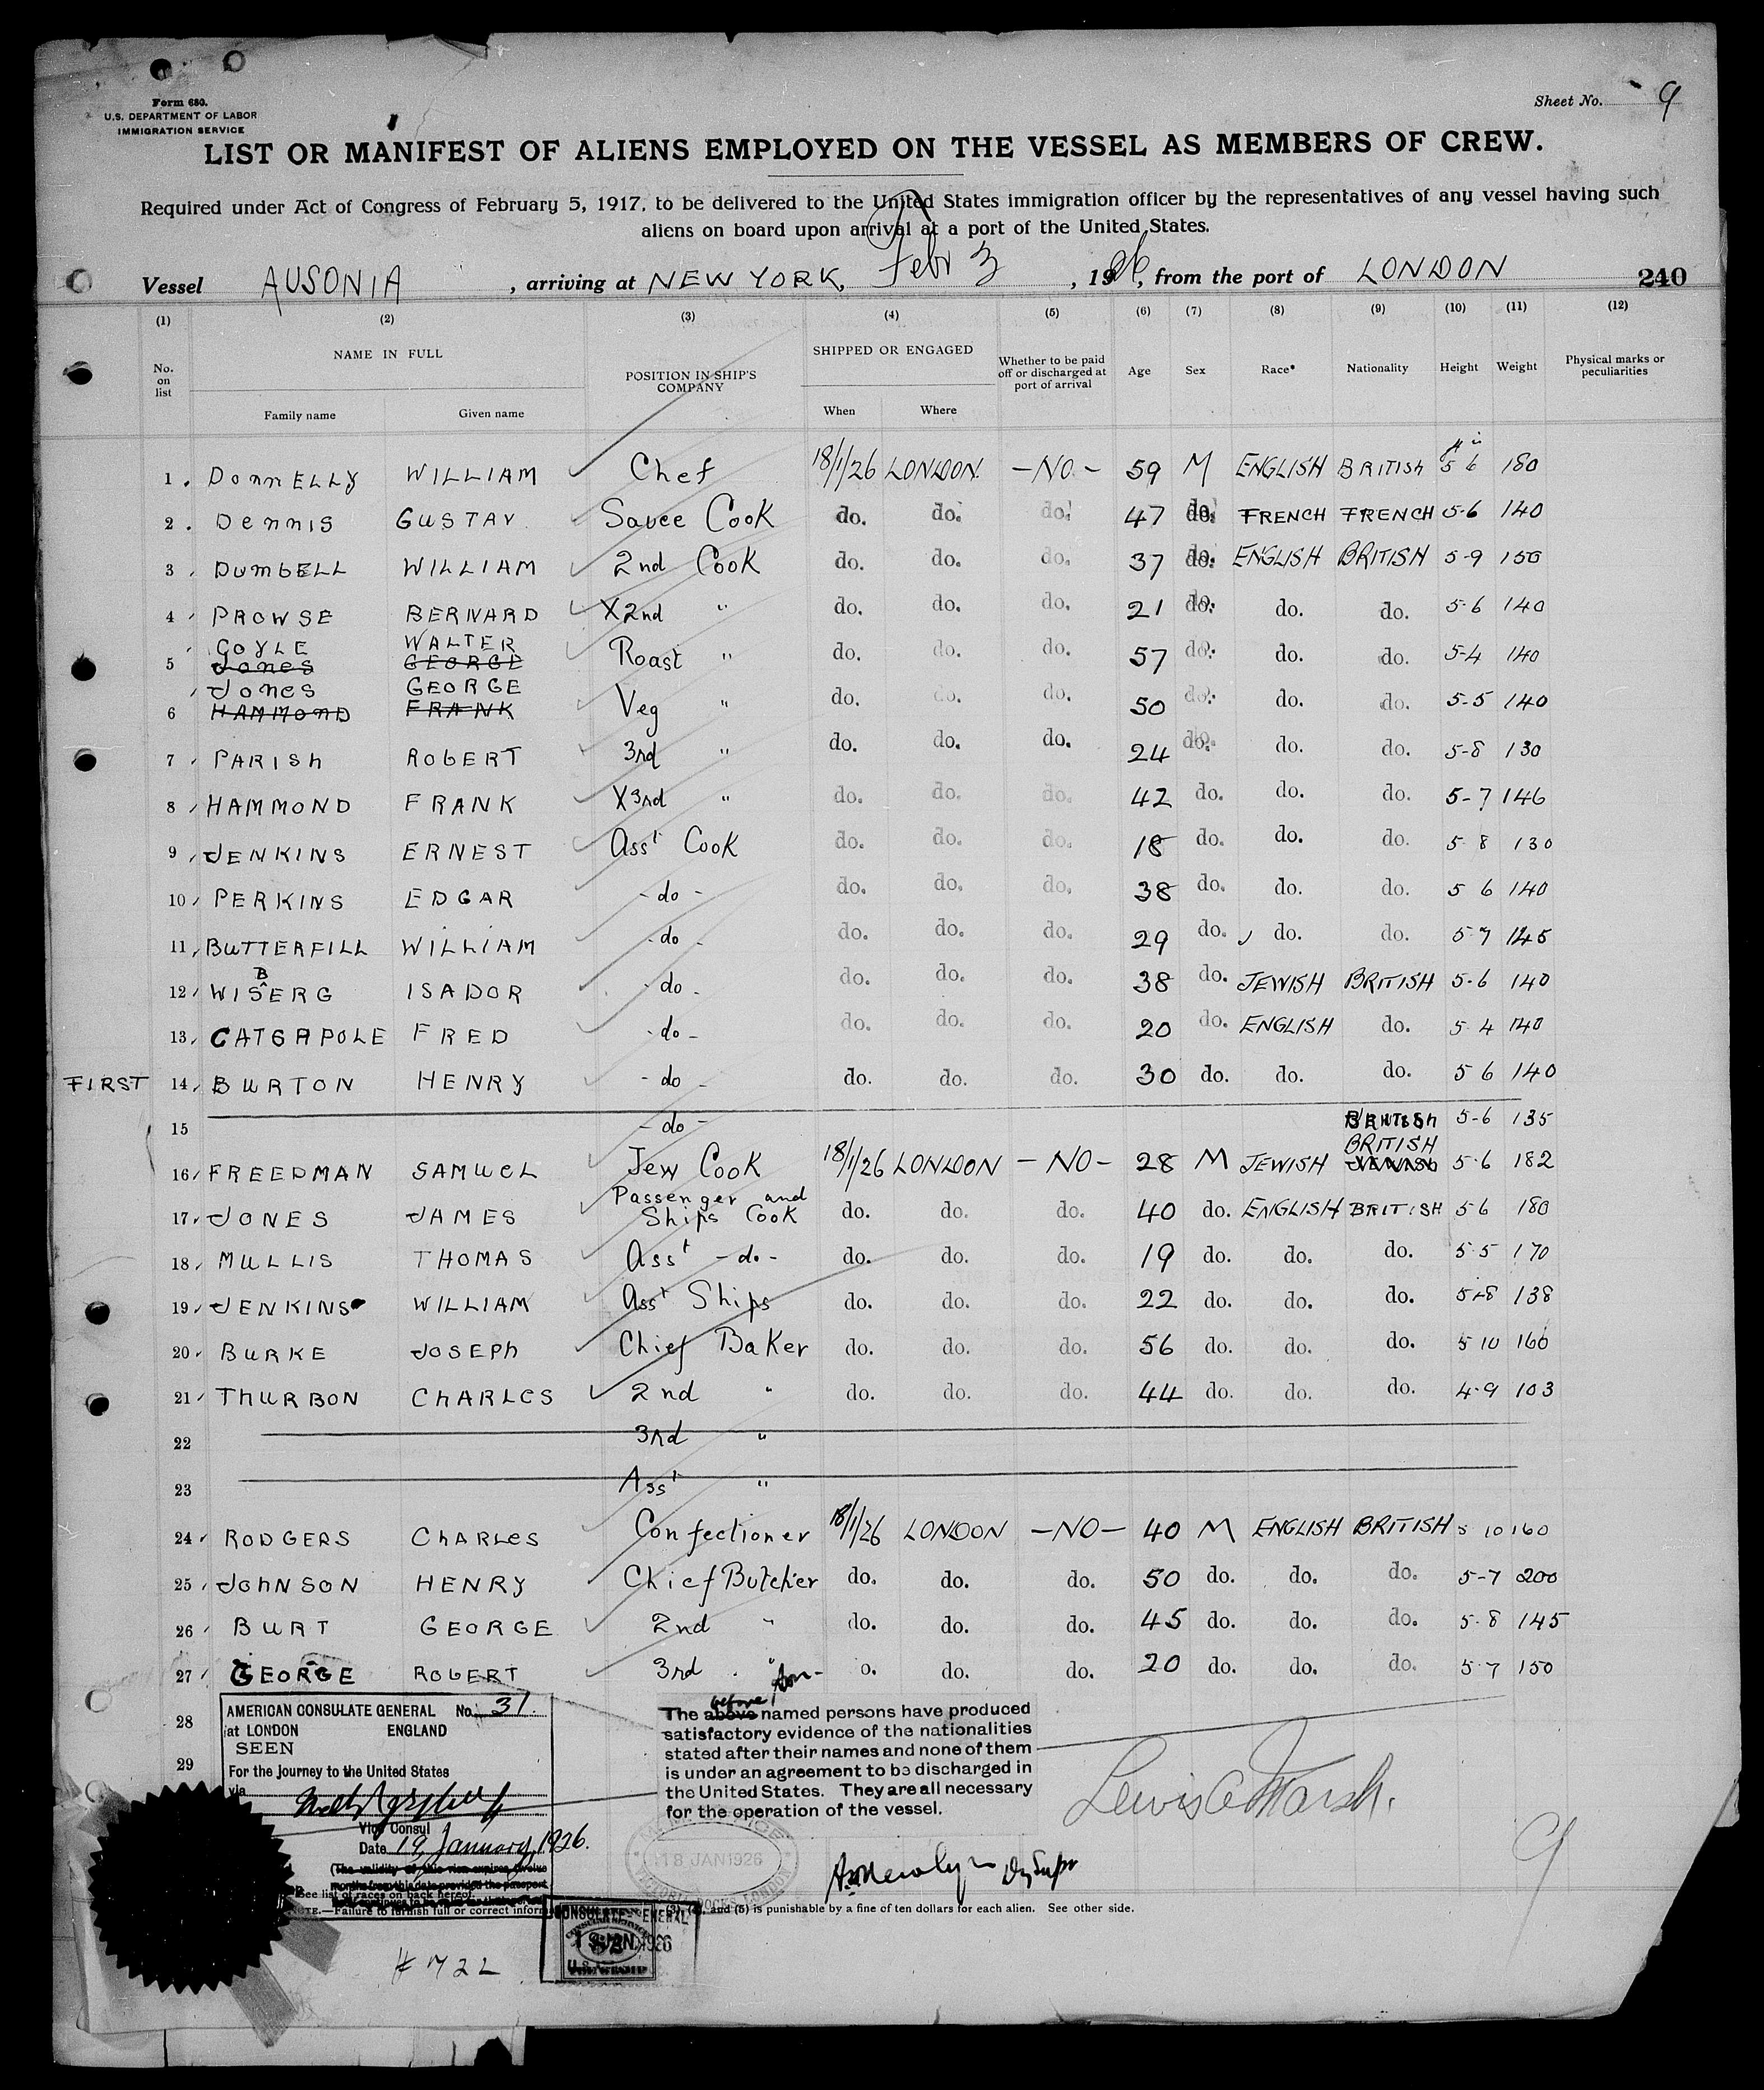 Form 680.
U.S. DEPARTMENT OF LABOR
IMMIGRATION SERVICE
Sheet No. 9
LIST OR MANIFEST OF ALIENS EMPLOYED ON THE VESSEL AS MEMBERS OF CREW.
Required under Act of Congress of February 5, 1917, to be delivered to the United States immigration officer by the representatives of any vessel having such
aliens on board upon arrival at a port of the United States.
Vessel AUSONIA, arriving at NEW YORK, Febr 3, 1926, from the port of LONDON 240
(1) (2) (3) (4) (5) (6) (7) (8) (9) (10) (11) (12)
No. on list NAME IN FULL POSITION IN SHIP'S COMPANY SHIPPED OR ENGAGED Whether to be paid off or discharged at port of arrival Age Sex Race* Nationality Height Weight Physical marks or peculiarities
Family name Given name When Where
1. DONNELLY WILLIAM Chef 18/1/26 LONDON. -NO- 59 M ENGLISH BRITISH 5 6 180
2. DENNIS GUSTAV Sauce Cook do. do. do. 47 do. FRENCH FRENCH 5-6 140
3 DUMBELL WILLIAM 2nd Cook do. do. do. 37 do. ENGLISH BRITISH 5-9 150
4 PROWSE BERNARD X2nd " do. do. do. 21 do. do. do. 5-6 140
GOYLE WALTER
5 Jones GEORGE Roast " do. do. do. 57 do. do. do. 5-4 140
Jones GEORGE
6 HAMMOND FRANK Veg " do. do. do. 50 do. do. do. 5-5 140
7 PARISH ROBERT 3rd " do. do. do. 24 do. do. do. 5-8 130
8 HAMMOND FRANK X3rd " do. do. do. 42 do. do. do. 5-7 146
9 JENKINS ERNEST Asst Cook do. do. do. 18 do. do. do. 5 8 130
10 PERKINS EDGAR -do- do. do. do. 38 do. do. do. 5 6 140
11 BUTTERFILL WILLIAM -do- do. do. do. 29 do. do. do. 5-7 145
B
12 WISERG ISADOR -do- do. do. do. 38 do. JEWISH BRITISH 5-6 140
13 CATGAPOLE FRED -do- do. do. do. 20 do. ENGLISH do. 5 4 140
FIRST 14 BURTON HENRY -do- do. do. do. 30 do. do. do. 5 6 140
15 -do- BRITISH 5-6 135
BRITISH
16 FREEDMAN SAMUEL Jew Cook 18/1/26 LONDON -NO- 28 M JEWISH 5-6 182
17 JONES JAMES Passenger and Ships Cook do. do. do. 40 do. ENGLISH BRITISH 5 6 180
18 MULLIS THOMAS Asst -do- do. do. do. 19 do. do. do. 5-5 170
19 JENKINS WILLIAM Asst Ships do. do. do. 22 do. do. do. 5-8 138
20 BURKE JOSEPH Chief Baker do. do. do. 56 do. do. do. 5 10 160
21 THURBON CHARLES 2nd " do. do. do. 44 do. do. do. 4-9 103
22 3rd "
23 Asst "
24 RODGERS CHARLES Confectioner 18/1/26 LONDON -NO- 40 M ENGLISH BRITISH 5 10 160
25 JOHNSON HENRY Chief Butcher do. do. do. 50 do. do. do. 5-7 200
26 BURT GEORGE 2nd " do. do. do. 45 do. do. do. 5-8 145
27 GEORGE ROBERT 3rd " o. do. do. 20 do. do. do. 5-7 150
28
29
AMERICAN CONSULATE GENERAL No. 31.
at LONDON ENGLAND
SEEN
For the journey to the United States
via
Vice Consul
Date 19 January, 1926.
before
The above named persons have produced
satisfactory evidence of the nationalities
stated after their names and none of them
is under an agreement to be discharged in
the United States. They are all necessary
for the operation of the vessel.
Lewis C Marsh.
9
18 JAN 1926
DOCKS LONDON
See list of races on back hereof.
NOTE.—Failure to furnish full or correct inform (3), (4), and (5) is punishable by a fine of ten dollars for each alien. See other side.
# 722